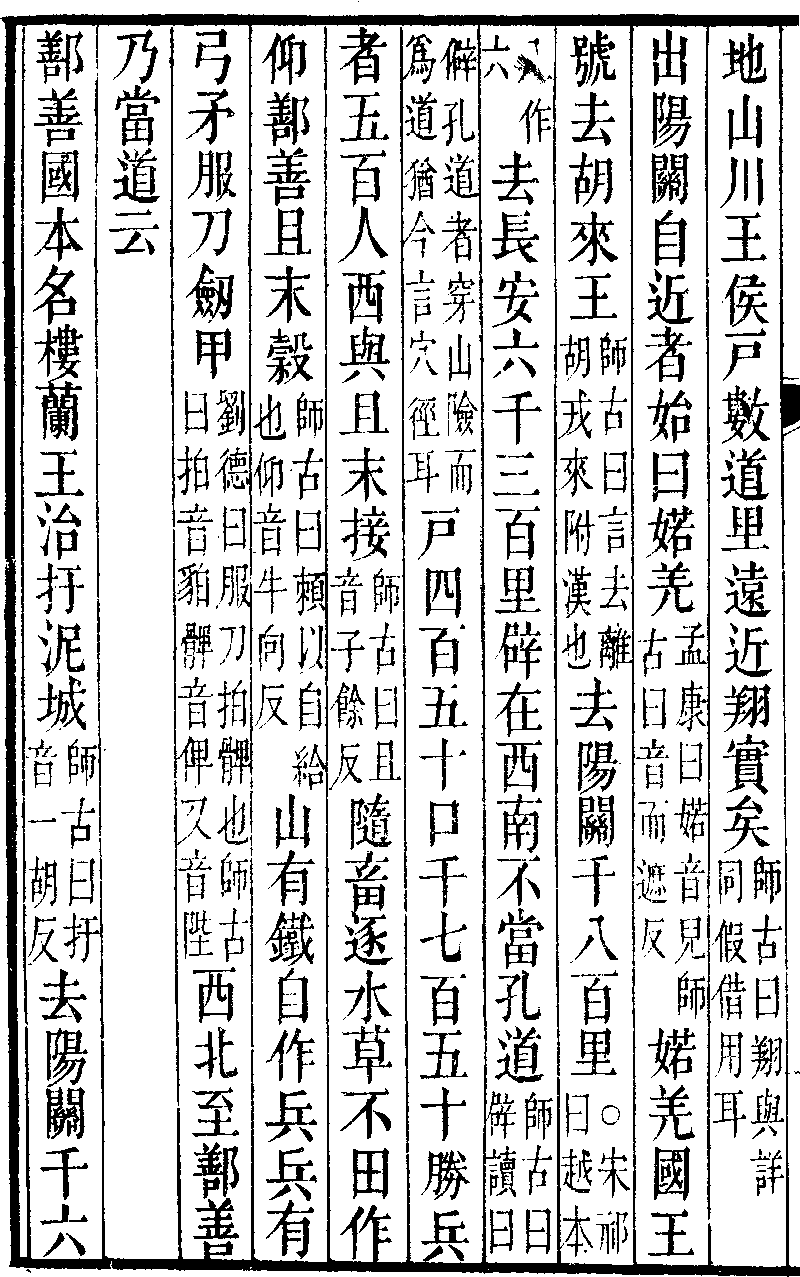 地山川王侯戸數道里遠近翔實矣師古曰翔與詳同假借用耳
出陽關自近者始曰婼羌孟康曰婼音兒師古曰音而遮反婼羌國王
號去胡來王師古曰言去離胡戎來附漢也去陽關千八百里○宋祁曰越本
八作六去長安六千三百里辟在西南不當孔道師古曰辟讀曰
僻孔道者穿山險而爲道猶今言穴徑耳戸四百五十口千七百五十勝兵
者五百人西與且末接師古曰且音子餘反隨畜逐水草不田作
仰鄯善且末穀師古曰賴以自給也仰音牛向反山有鐵自作兵兵有
弓矛服刀劒甲劉德曰服刀拍髀也師古曰拍音貊髀音俾又音陛西北至鄯善
乃當道云
鄯善國本名樓蘭王治扜泥城師古曰扜音一胡反去陽關千六